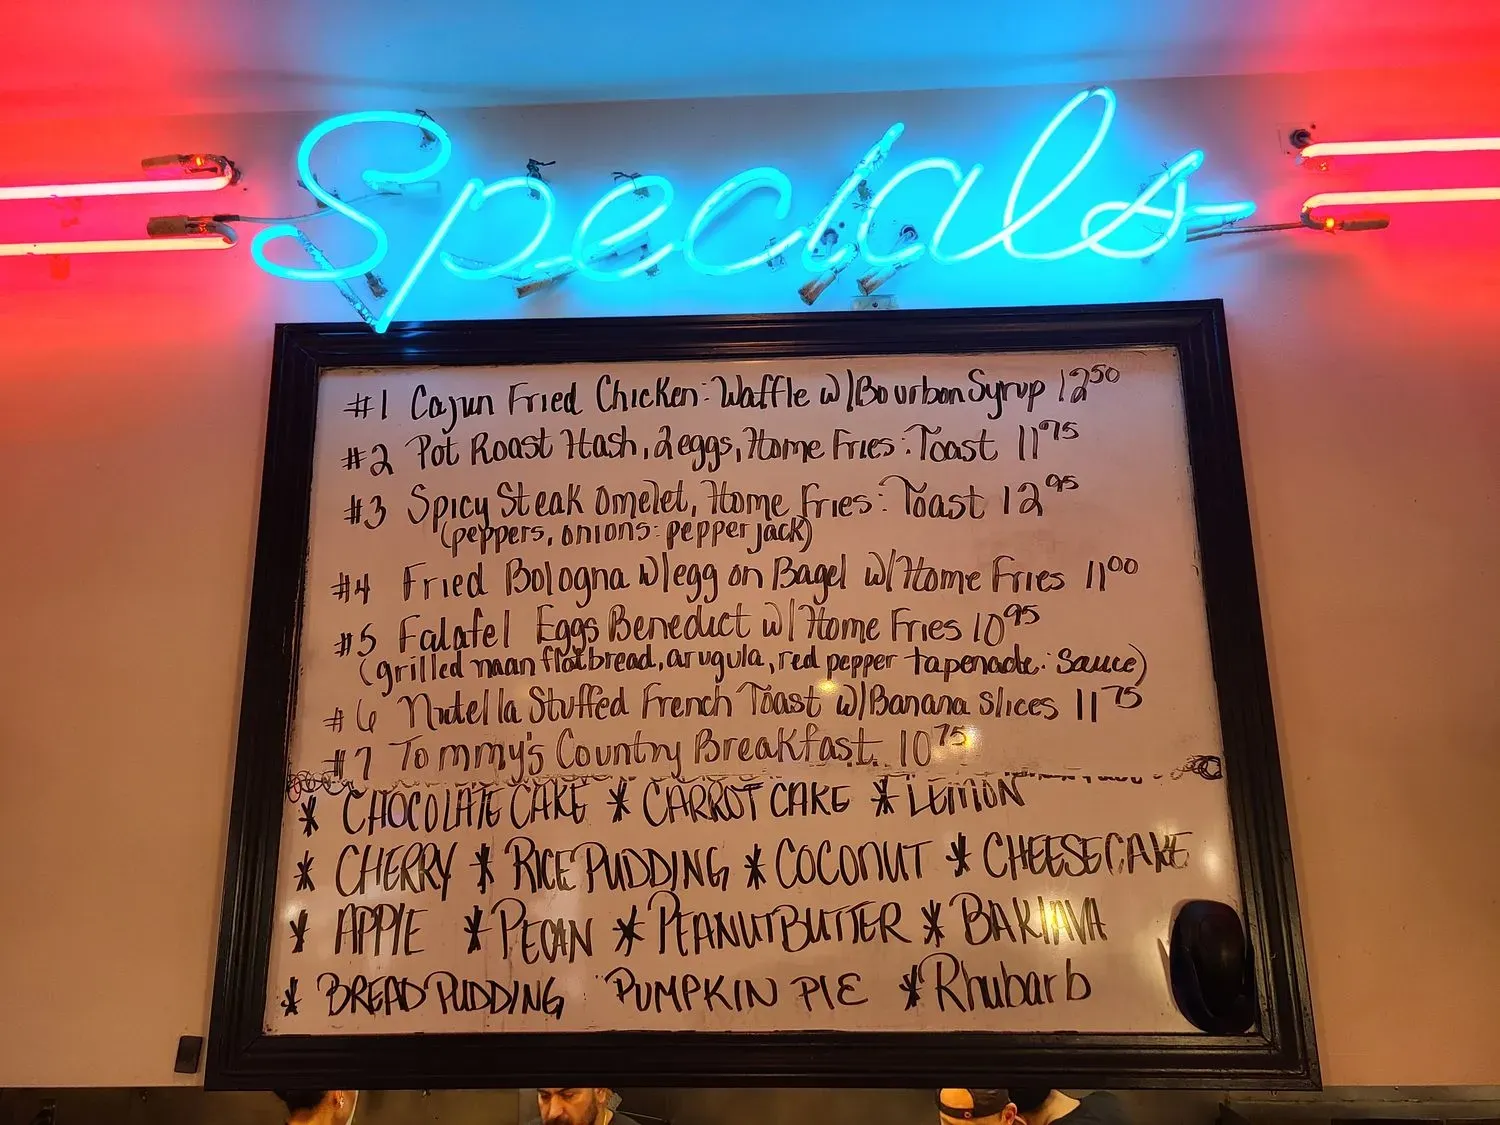 Specials
#1 Cajun Fried Chicken: Waffle w/Bourbon Syrup 12⁵⁰
#2 Pot Roast Hash, 2eggs, Home Fries: Toast 11⁷⁵
#3 Spicy Steak Omelet, Home Fries: Toast 12⁹⁵
(peppers, onions: pepper jack)
#4 Fried Bologna w/egg on Bagel w/Home Fries 11⁰⁰
#5 Falafel Eggs Benedict w/Home Fries 10⁹⁵
(grilled naan flatbread, arugula, red pepper tapenade: sauce)
#6 Nutella Stuffed French Toast w/Banana Slices 11⁷⁵
#7 Tommy's Country Breakfast.. 10⁷⁵
* CHOCOLATE CAKE * CARROT CAKE * LEMON
* CHERRY * RICE PUDDING * COCONUT * CHEESECAKE
* APPLE * PECAN * PEANUTBUTTER * BAKLAVA
* BREAD PUDDING PUMPKIN PIE * Rhubarb